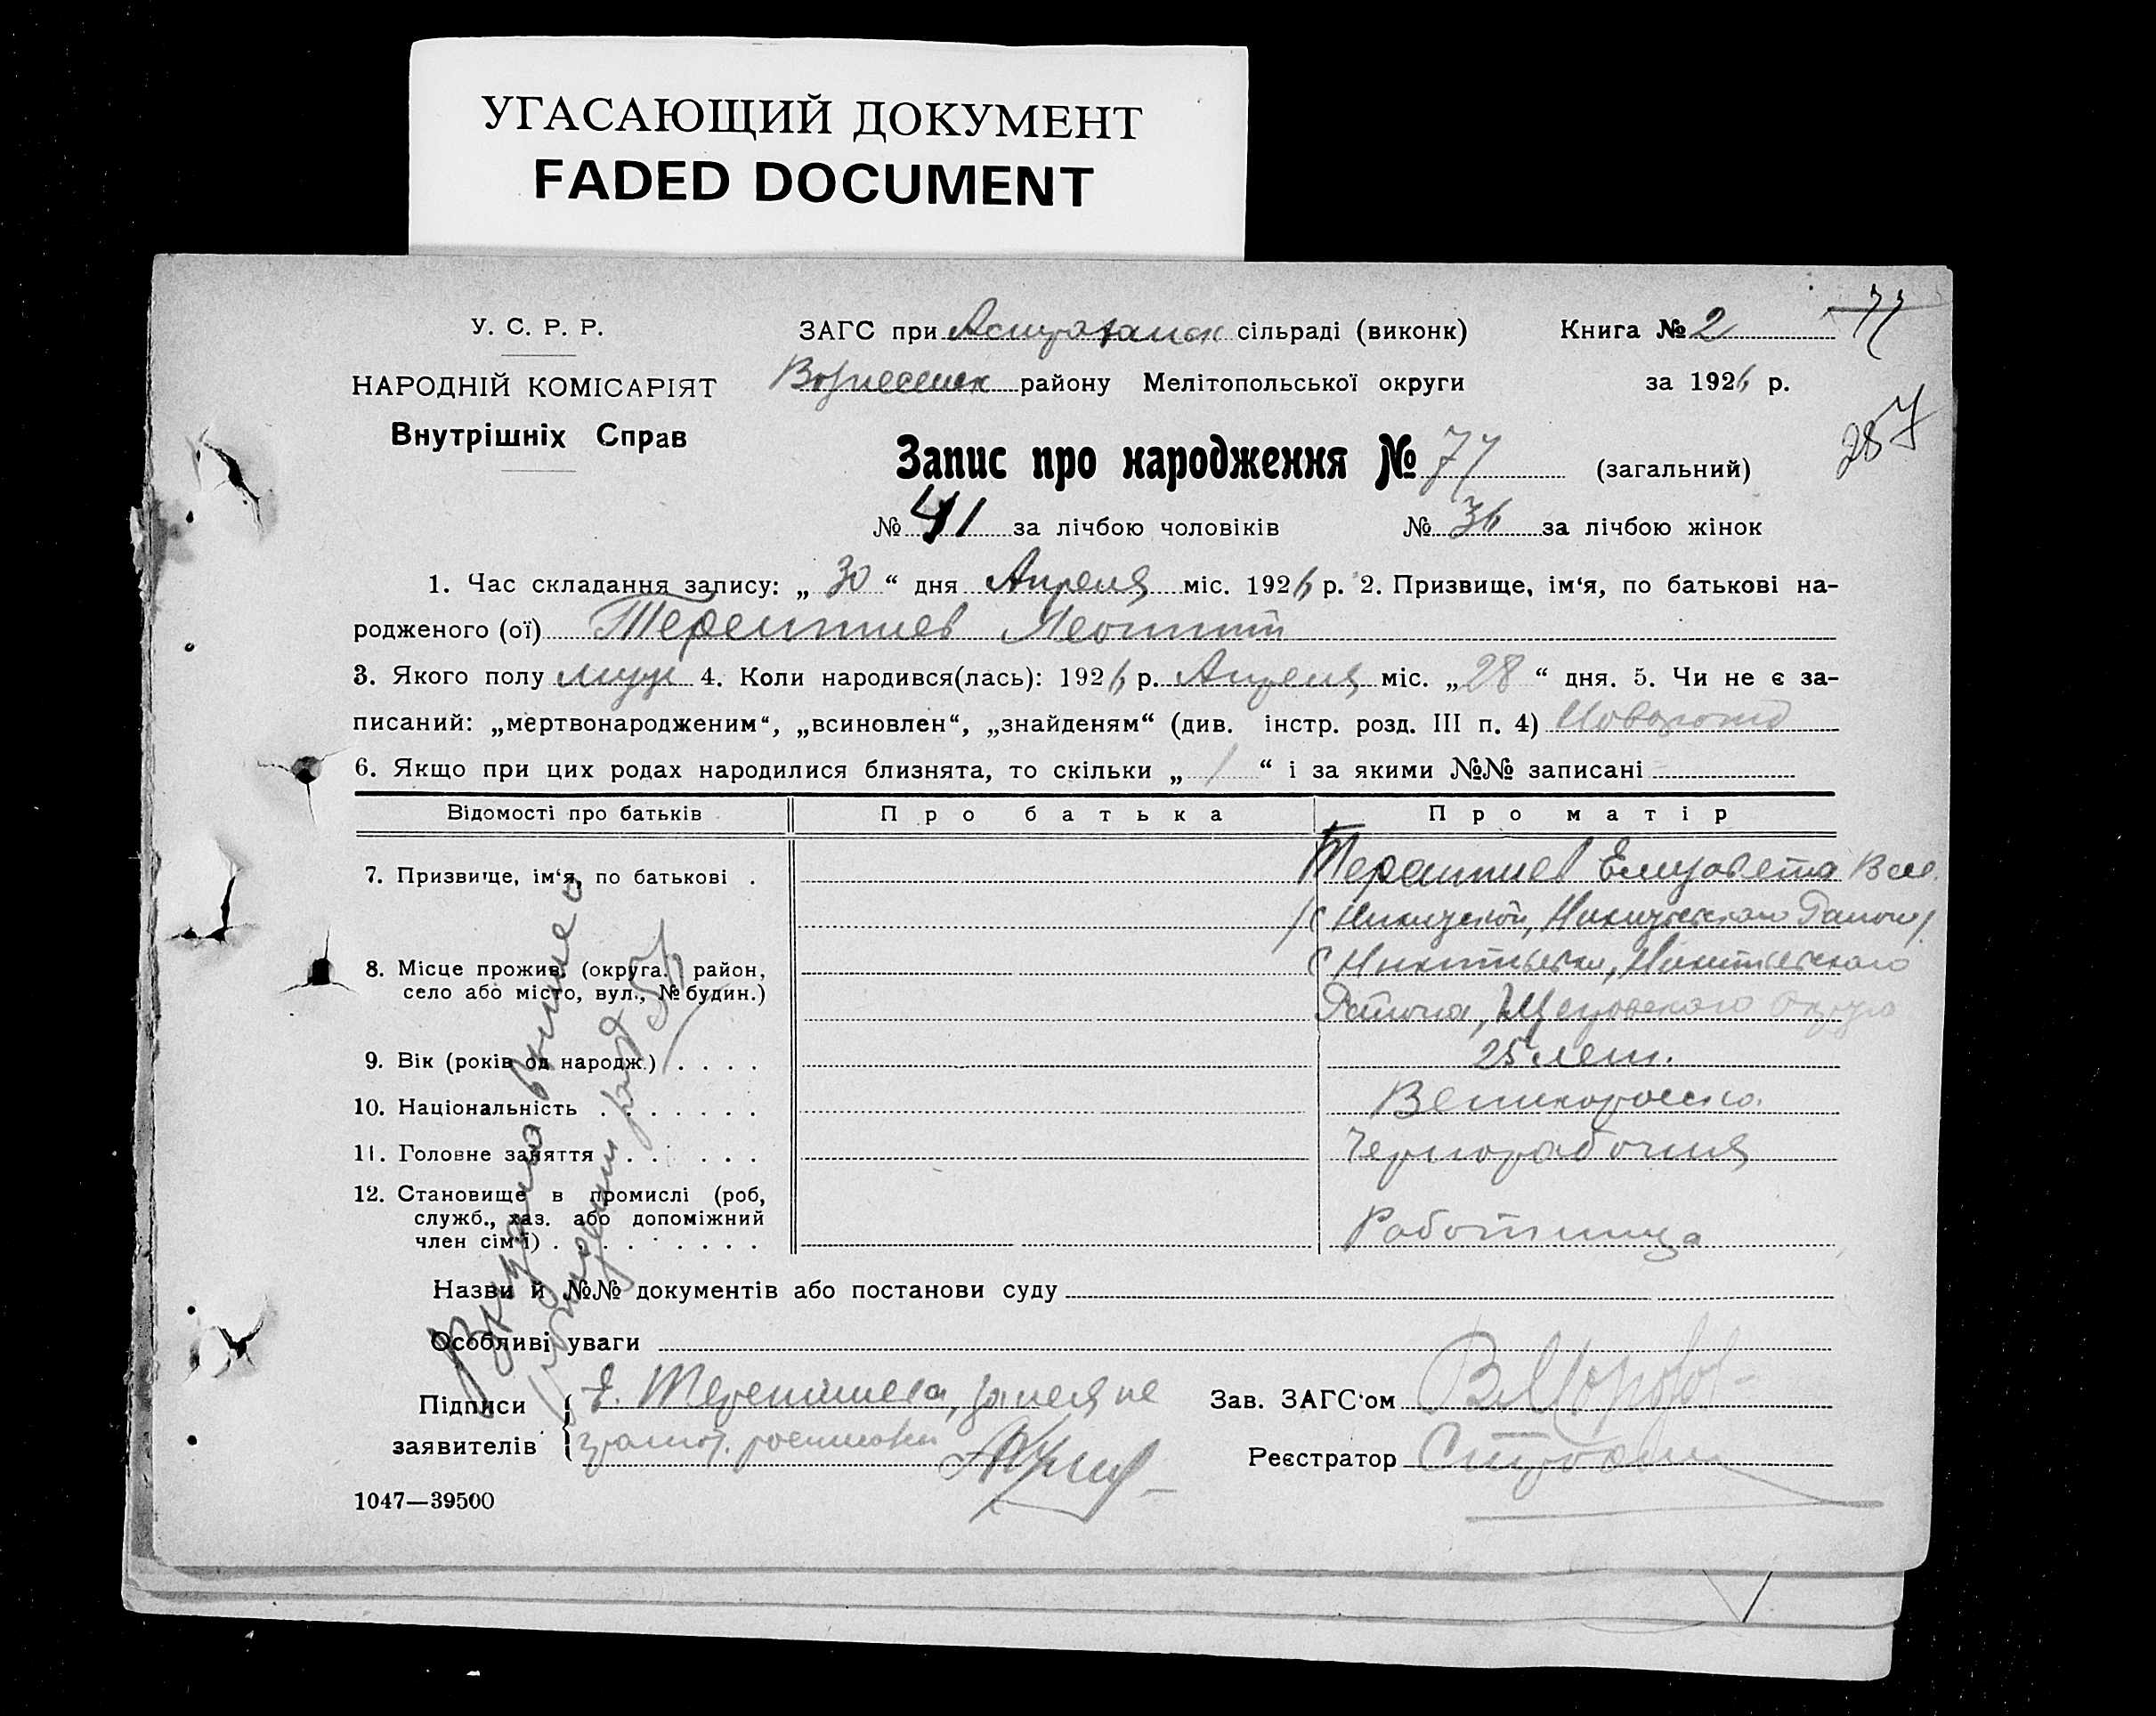 УГАСАЮЩИЙ ДОКУМЕНТ
FADED DOCUMENT
77
У. С. Р. Р.
НАРОДНІЙ КОМІСАРІЯТ
Внутрішніх Справ
ЗАГС при сільраді (виконк)
Книга № 2
Вознесенск району Мелітопольської округи
за 1926 р.
287
Запис про народження № 77 (загальний)
№ 41 за лічбою чоловіків № 36 за лічбою жінок
1. Час складання запису: „ 30 “ дня Апреля міс. 1926 р. 2. Призвище, ім‘я, по батькові на-
родженого (ої) Терентиев Леонтий
3. Якого полу муж 4. Коли народився(лась): 1926 р. Апреля міс. „ 28 “ дня. 5. Чи не є за-
писаний: „мертвонародженим“, „всиновлен“, „знайденям“ (див. інстр. розд. III п. 4)
6. Якщо при цих родах народилися близнята, то скільки „ / “ і за якими №№ записані
Відомості про батьків Про батька Про матір
7. Призвище, ім‘я, по батькові . Терентиев Елизавета Вас.
8. Місце прожив. (округа, район,
село або місто, вул., № будин.)
Района, округа
9. Вік (років од народж.) . . . . 25 лет.
10. Національність . . . . . . . Великоросска.
11. Головне заняття . . . . . . Чернорабочия
12. Становище в промислі (роб,
служб., хаз. або допоміжний
член сім‘ї) . . . . . . . . . Работница
Назви й №№ документів або постанови суду
Особливі уваги
Підписи Е. Терентиева, за нея не
заявителів грамот. росписался
Зав. ЗАГС‘ом
Реєстратор
1047—39500